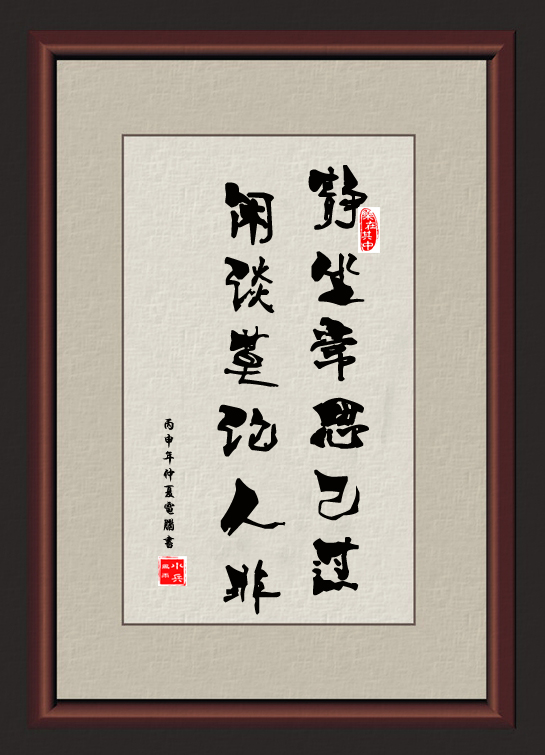 静坐常思己过
乐在其中
闲谈莫论人非
丙申年仲夏電腦書
小兵